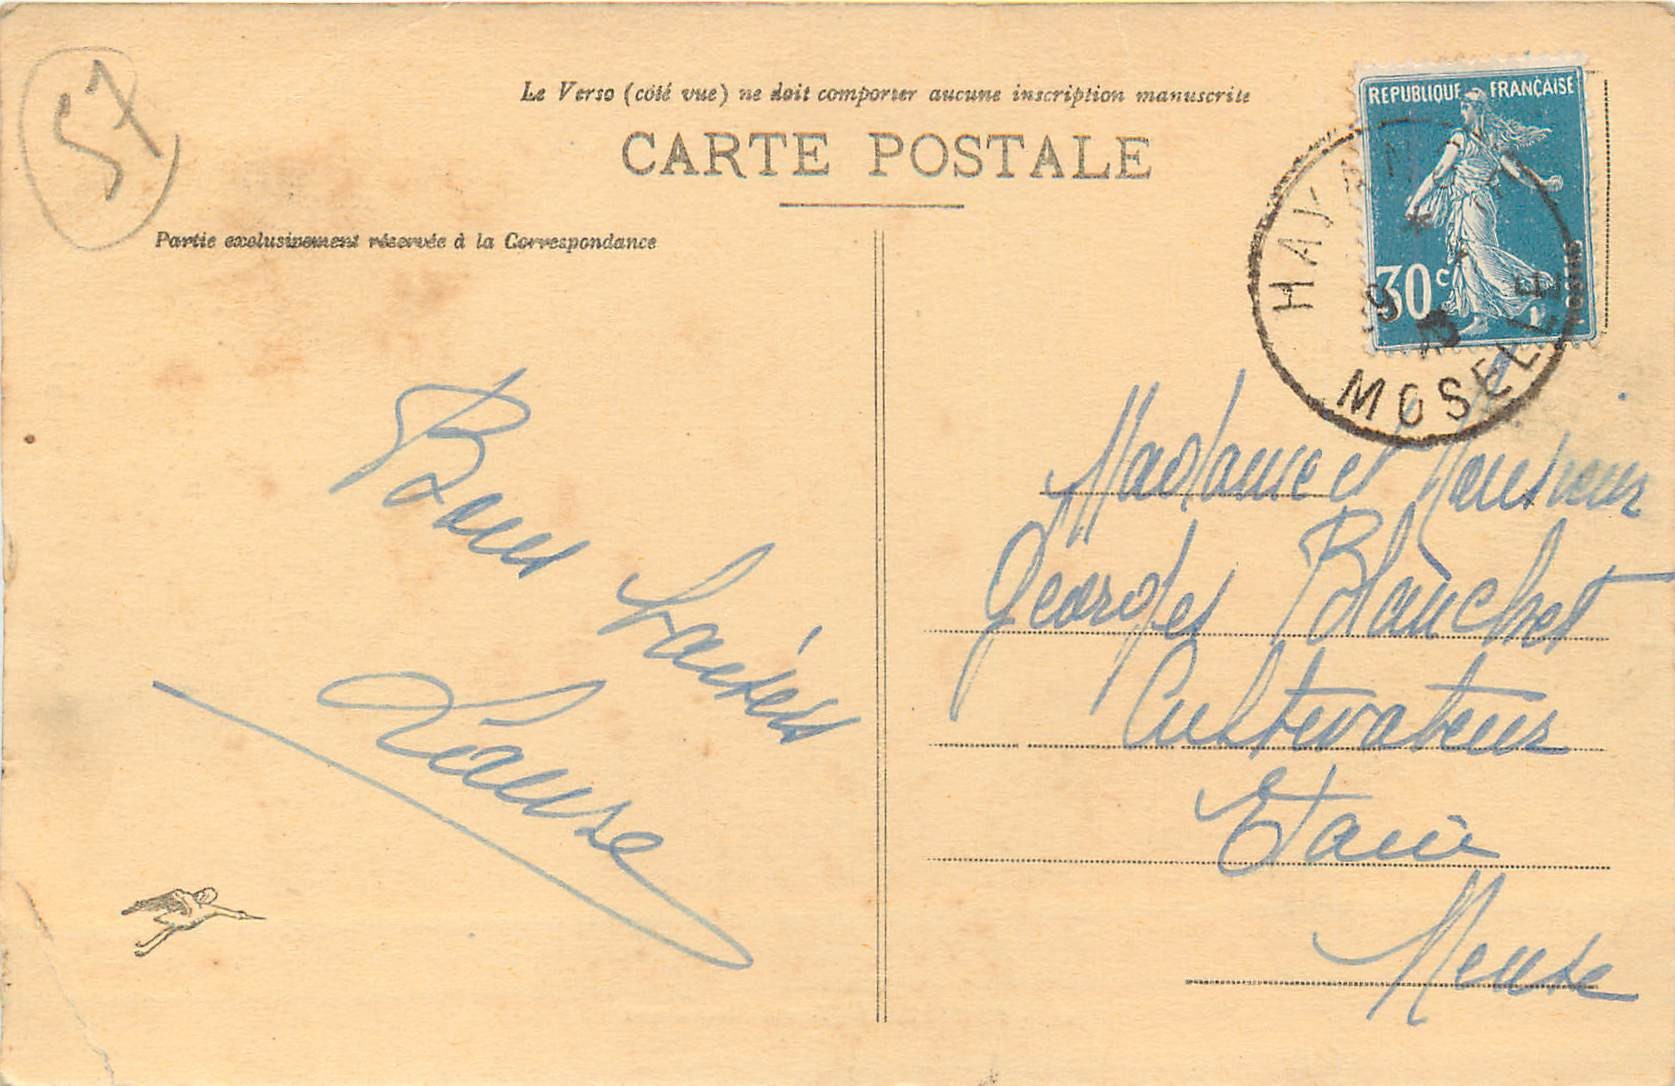 57
Le Verso (côté vue) ne doit comporter aucune inscription manuscrite
CARTE POSTALE
Partie exclusivement réservée à la Correspondance
REPUBLIQUE FRANÇAISE
30c
HAYAN
MOSELLE
Bons baisers
Madame et Monsieur
Georges Blanchet
Cultivateur
Etain
Meuse